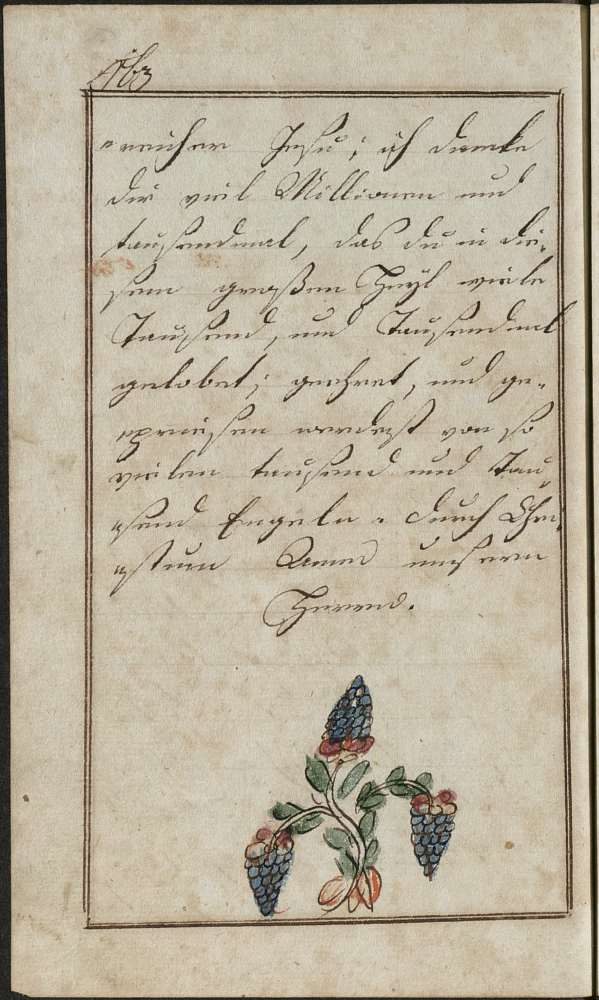 163
"reicher Jesu; ich dancke
dir viel Millionen und
tausendmal, das du in die„
sem großen Heyl viele
Tausend, und Tausendmal
gelobet; geehret, und ge„
"priesen werdest von so
vielen tausend und Tau„
"send Engeln. durch Chri„
"stum unsern
Herrn.